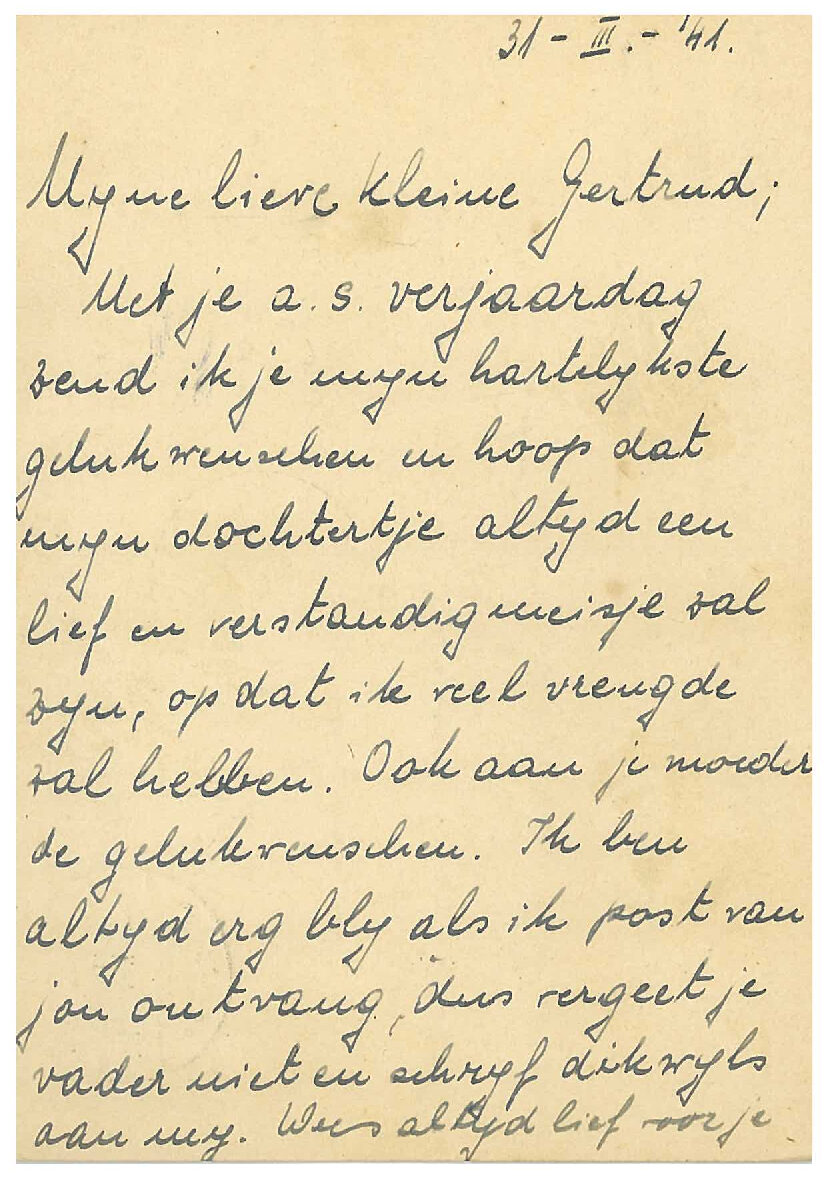 31 - III. - '41.
Myne lieve kleine Gertrud;
Met je a.s. verjaardag
zend ik je myn hartelykste
gelukwenschen en hoop dat
myn dochtertje altyd een
lief en verstandig meisje zal
zyn, opdat ik veel vreugde
zal hebben. Ook aan je moeder
de gelukwenschen. Ik ben
altyd erg bly als ik post van
jou ontvang, dus vergeet je
vader niet en schryf dikwyls
aan my. Wees altyd lief voor je